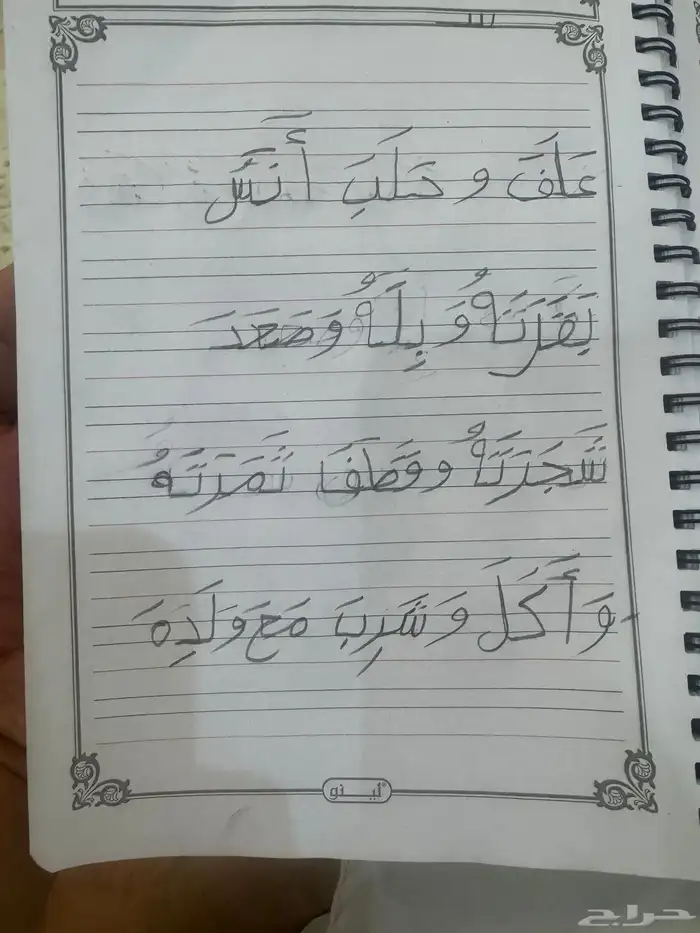 عَلَفَ و حَلَبَ أَنَسَ
بَقَرَتَهُ وَ بِلَهُ وَصَعَدَ
شَجَرَتَهُ و قَطَفَا ثَمَرَتَهُ
وَأَكَلَ وَشَرِبَ مَعَ وَلَدِهَ
لينو
حراج